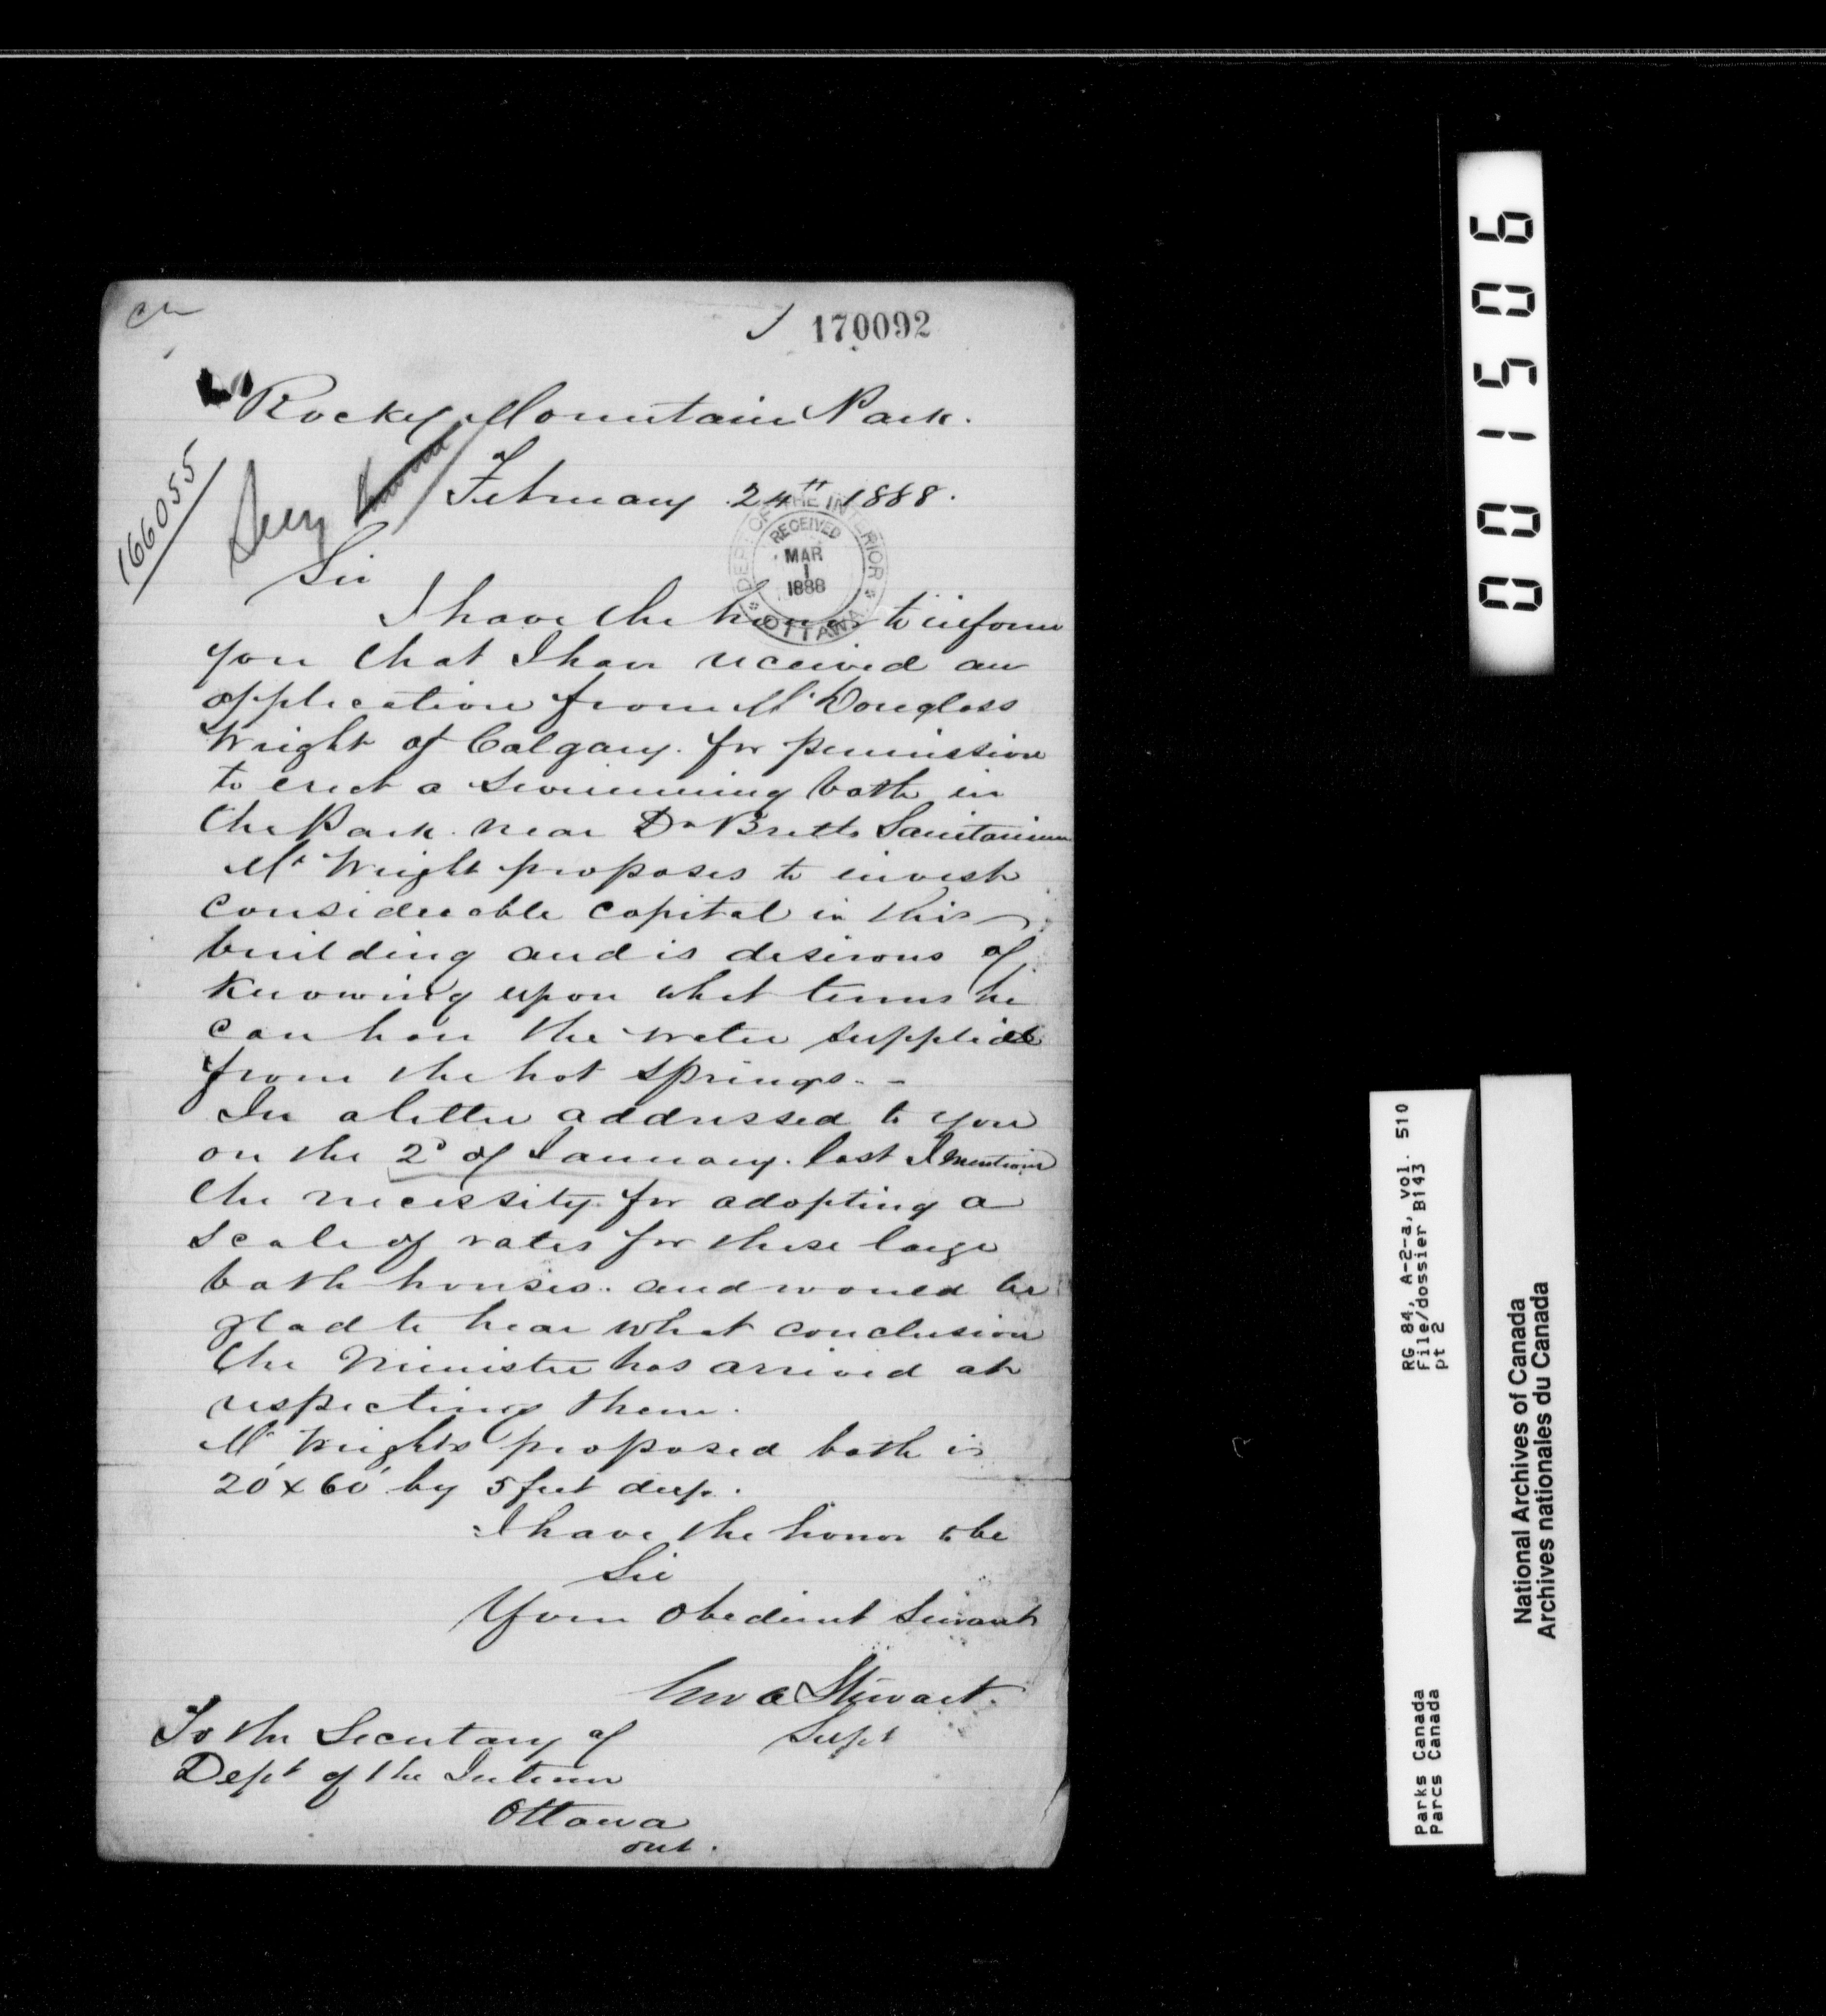 170092
Rocky Mountain Park.
February 24th 1888.
166055
DEPT. OF THE INTERIOR
RECEIVED
MAR
1
1888
OTTAWA
Sir
I have the honor to inform
you that I have received an
application from Mr Douglass
Wright of Calgary. for permission
to erect a swimming bath in
the Park near Dr Bretts Sanitarium
Mr Wright proposes to invest
considerable capital in this
building and is desirous of
knowing upon what terms he
can have the water supplied
from the hot springs. -
In a letter addressed to you
on the 2d of January last I mention
the necessity for adopting a
scale of rates for these large
bath houses. and would be
glad to hear what conclusion
the Minister has arrived at
respecting them.
Mr Wrights proposed bath is
20' x 60' by 5 feet deep.
I have the honor to be
Sir
Your obedient Servant
Geo A Stewart.
Supt
To the Secretary of
Dept of the Interior
Ottawa
Ont.
001506
RG 84, A-2-a, vol. 510
File/dossier B143
pt 2
Parks Canada
Parcs Canada
National Archives of Canada
Archives nationales du Canada